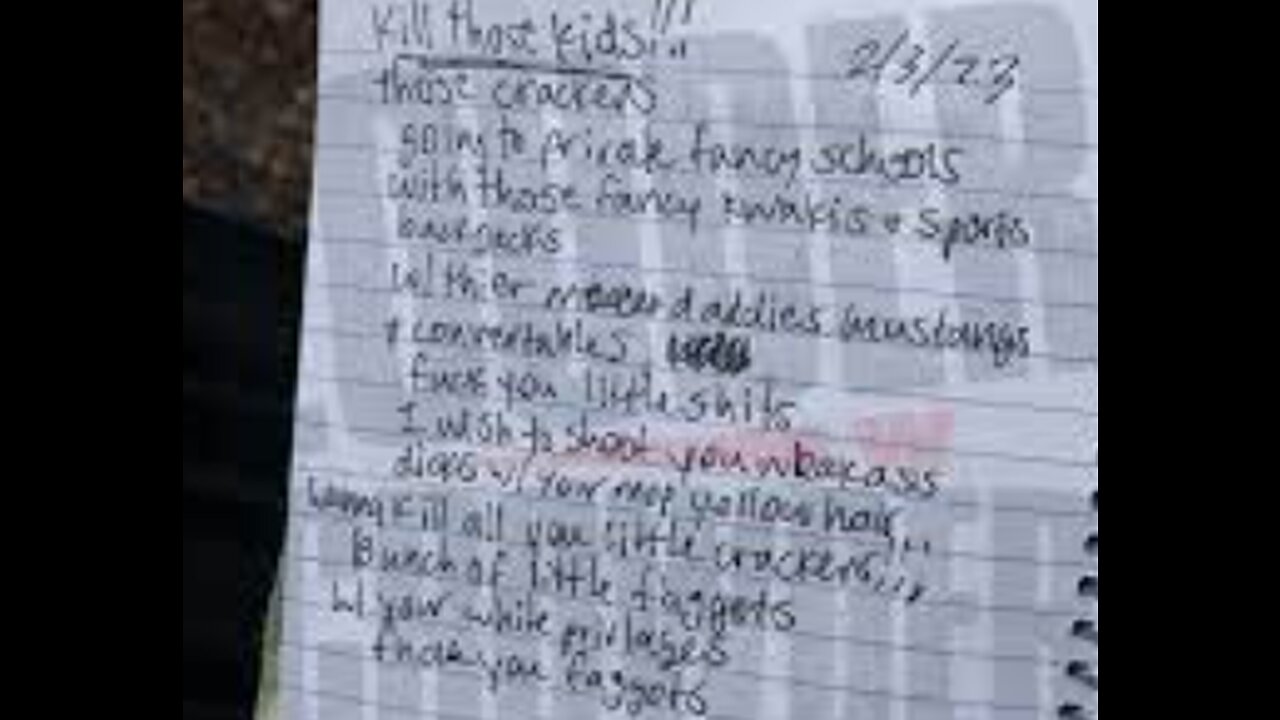 Kill those kids!!!
2/3/23
those crackers
going to private fancy schools
with those fancy kwakis + sports
backpacks
w/ thier daddies mustangs
+ convertables
fuck you little shits
I wish to shoot you weakass
dicks w/ your mop yellow hair,..
wanna kill all you little crackers!!!
Bunch of little faggots
w/ your white privlages
fuck you faggots